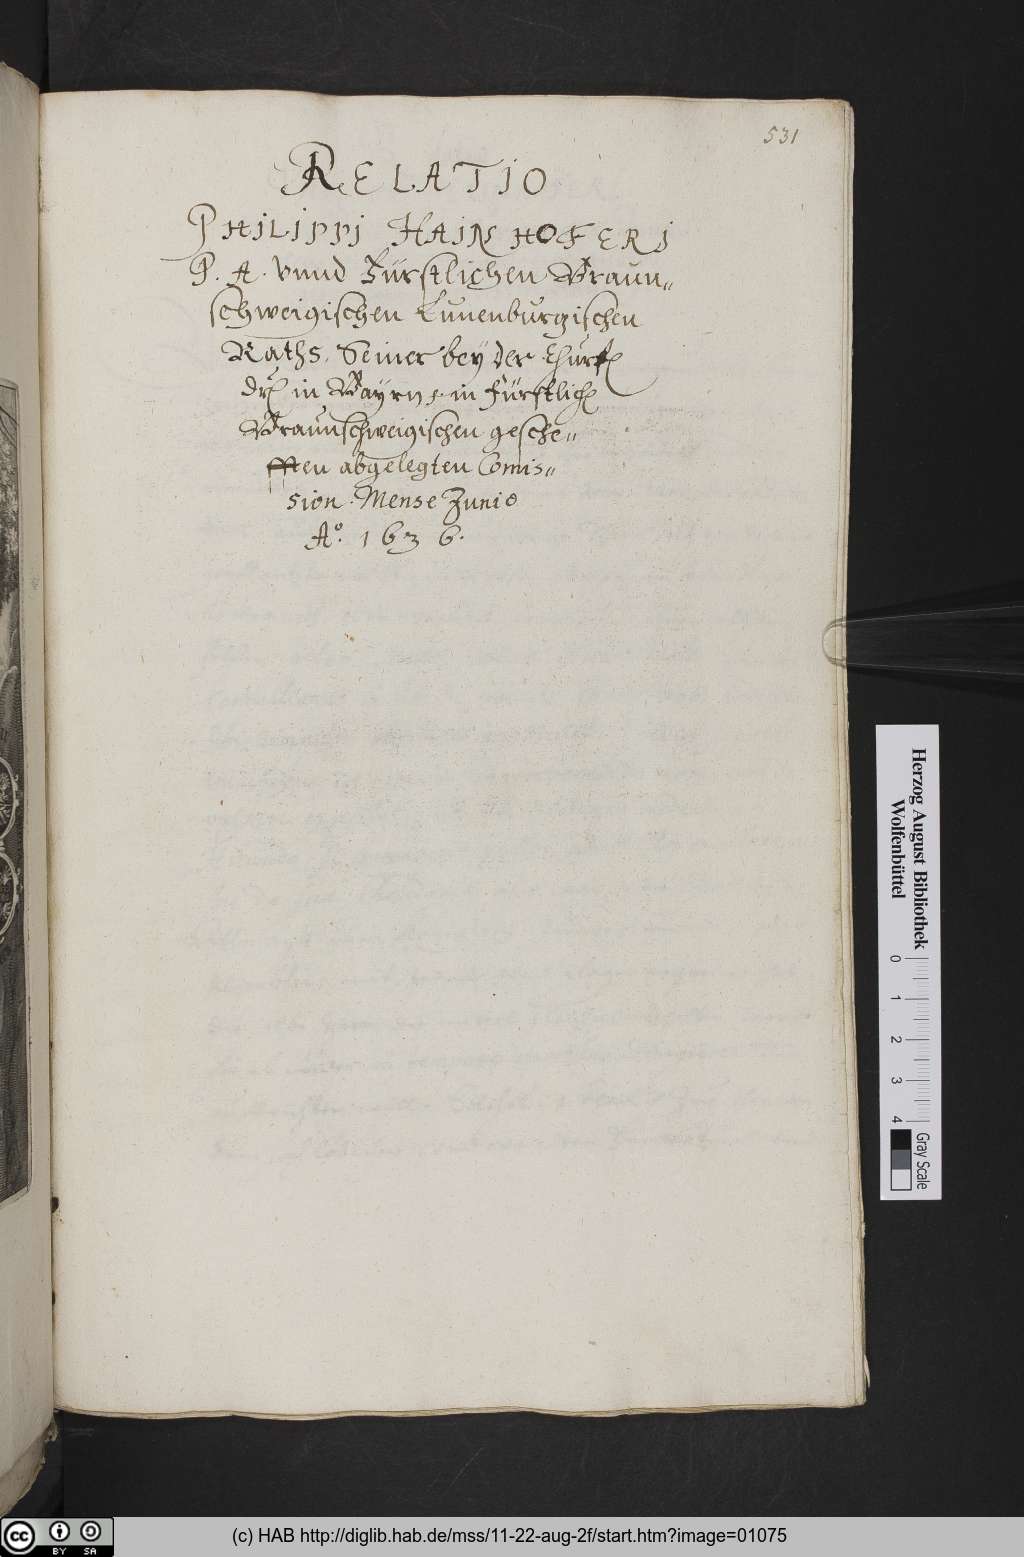 531
RELATIO
PHILIPPI HAINHOFERI
P. A. vnnd Fürstlichen Braun„
schweigischen Lunenburgischen
Raths. Seiner bey der Churf
dr in Bayrn, in Fürstlich
Braunschweigischen gesche„
fften abgelegten Comis„
sion. Mense Junio
Aº. 1636.
Herzog August Bibliothek
Wolfenbüttel
0 1 2 3 4
Gray Scale
cc BY SA
(c) HAB http://diglib.hab.de/mss/11-22-aug-2f/start.htm?image=01075